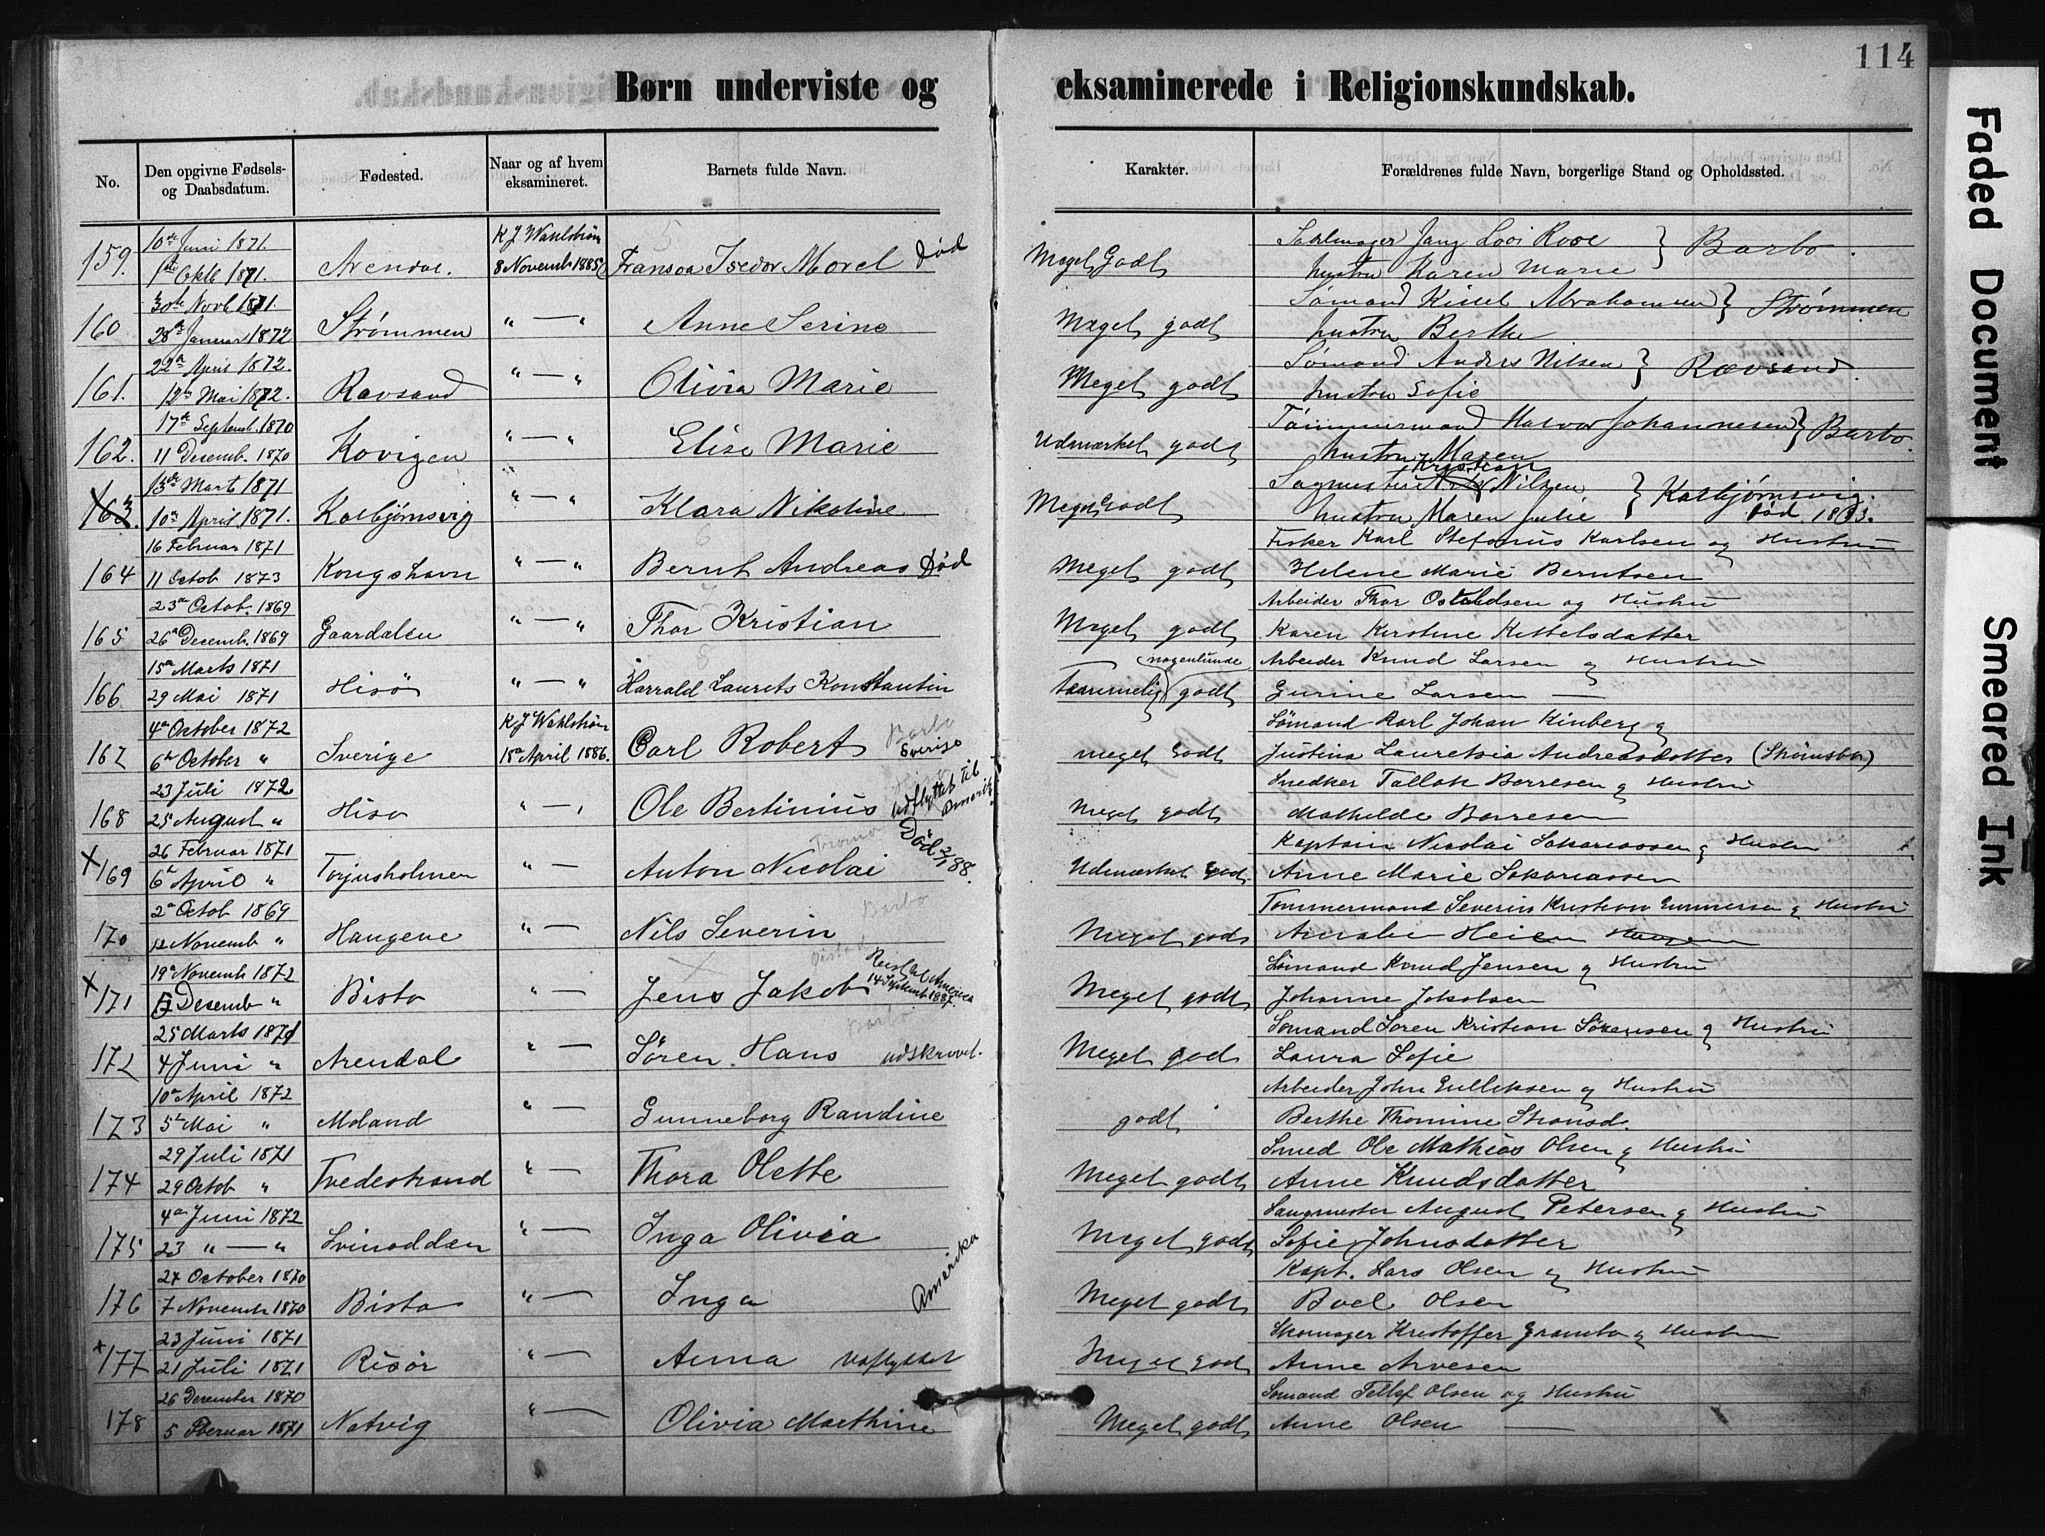 114
Børn underviste og eksaminerede i Religionskundskab.
No. Den opgivne Fødsels- og Daabsdatum. Fødested. Naar og af hvem eksamineret. Barnets fulde Navn. Karakter. Forældrenes fulde Navn, borgerlige Stand og Opholdssted.
10de Juni 1871. K J Wahlström
159. 1ste Oktb 1871. Arendal. 8 Novemb 1885 Isedor Morel död Meget Godt Barbo.
hustru Karen Marie
30te Novb 1871. Sømand Kittel Abrahamsen } Strømmen
160. 28de Januar 1872 Strømmen " — " Anne Serine Meget godt hustru Berthe
22de April 1872. Sømand Anders Nilsen } Ravsand.
161. 12te Mai 1872. Ravsand " — " Olivia Marie Meget godt hustru Sofie
17de Septemb. 1870 Tømmermand Halvor Johannesen } Barbo.
162. 11 Desemb. 1870 Kovigen " — " Elise Marie Udmærket godt hustru Maren
13de Mart 1871 Kristian Nilsen } Kolbjørnsvig.
163. 10de April 1871. Kolbjørnsvig " — " Klara Nikoline Meget Godt hustru Maren Julie död 1883.
16 Februar 1871 Fisker Karl Stefanus Karlsen og Hustru
164 11 Octob 1873 Kongshavn " — " Bernt Andreas Död Meget godt Helene Marie Berntsen
23de Octob. 1869 Arbeider Thor Osuldsen og Hustru
165 26de Decemb. 1869 Gaardalen " — " Thor Kristian Meget godt Karen Kirstine Kittelsdatter
15de Marts 1871 nogenlunde Arbeider Knud Larsen og Hustru
166 29 Mai 1871 Hisö " — " Harrald Laurets Konstantin Taarnmelig godt Gurine Larsen —
4de October 1872 K J Wahlström Barbo Sömand Karl Johan Kinberg og
167 6te October " Sverige 15de April 1886. Carl Robert Sverige meget Godt Justina Lauretsia Andreasdatter (Strömsbo)
23 Juli 1872 udflyttet til Amerik. Snedker Tallak Borresen og Hustru
168 25 August " Hisö " — " Ole Bertinius Meget godt Mathilde Borresen
26 Februar 1871 Tromö Död 2/1 88. Kaptein Nicolai Sakariassen og Hustru
X 169 6te April " Torjusholmen " — Anton Nicolai Udmærket Godt Anne Marie Sakariassen
2de Octob 1869 Barbo Tommermand Severin Kristian Gunnersen og Hustru
170 12 Novemb " Haugene " — Nils Severin Meget godt
19de Novemb 1872 Reist til America Sömand Knud Jensen og Hustru
X 171 Desemb " Bisto " — Jens Jakob 14 Septemb 1887. Meget godt Johanne Jakobsen
25 Marts 1871 Barbo Sömand Sören Kristian Sörensen og Hustru
172 4 Juni " Arendal " — Sören Hans udskrevet. Meget god Laura Sofie
10de April 1872 Arbeider John Gulliksen og Hustru
173 5te Mai " Moland " — Gunneborg Randine godt Berthe Thomine Strand.
29 Juli 1871 Smed Ole Mathias Olsen og Hustru
174 29 Octob " Tvedestrand " — Thora Olette Meget godt Anne Knudsdatter
4de Juni 1872 Saugmester August Petersen og Hustru
175 23 " — " Svinodden " — Inga Olivia Meget godt Sofie Johnsdatter
24 October 1870 Amerika Kapt. Lars Olsen og Hustru
176 7 Novemb 1870 Bisto " — Inga Meget godt Boel Olsen
23 Juni 1871 Skomager Kristoffer Grambo og Hustru
x 177 21 Juli 1871 Risör " — Anna Udflyttet Meget God Anne Arvesen
26 December 1870 Sömand Tellef Olsen og Hustru
178 5 Februar 1871 Natvig " — Olivia Marthine Meget godt Anne Olsen —
Faded Document Smeared Ink